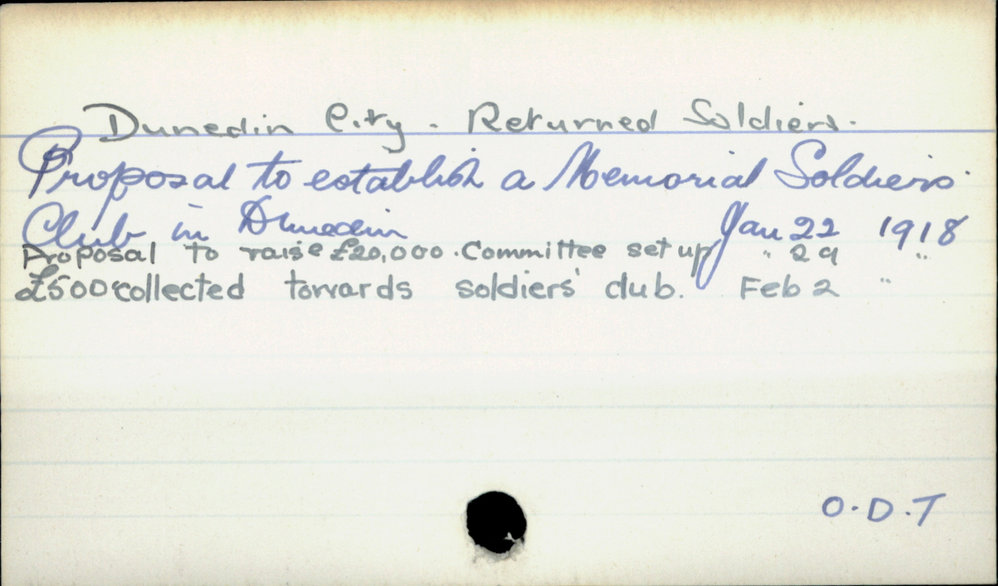 Dunedin City - Returned Soldiers.
Proposal to establish a Memorial Soldiers
Club in Dunedin Jan 22 1918
Proposal to raise £20,000. Committee set up " 29 "
£500 collected towards soldiers' club. Feb 2 "
O.D.T